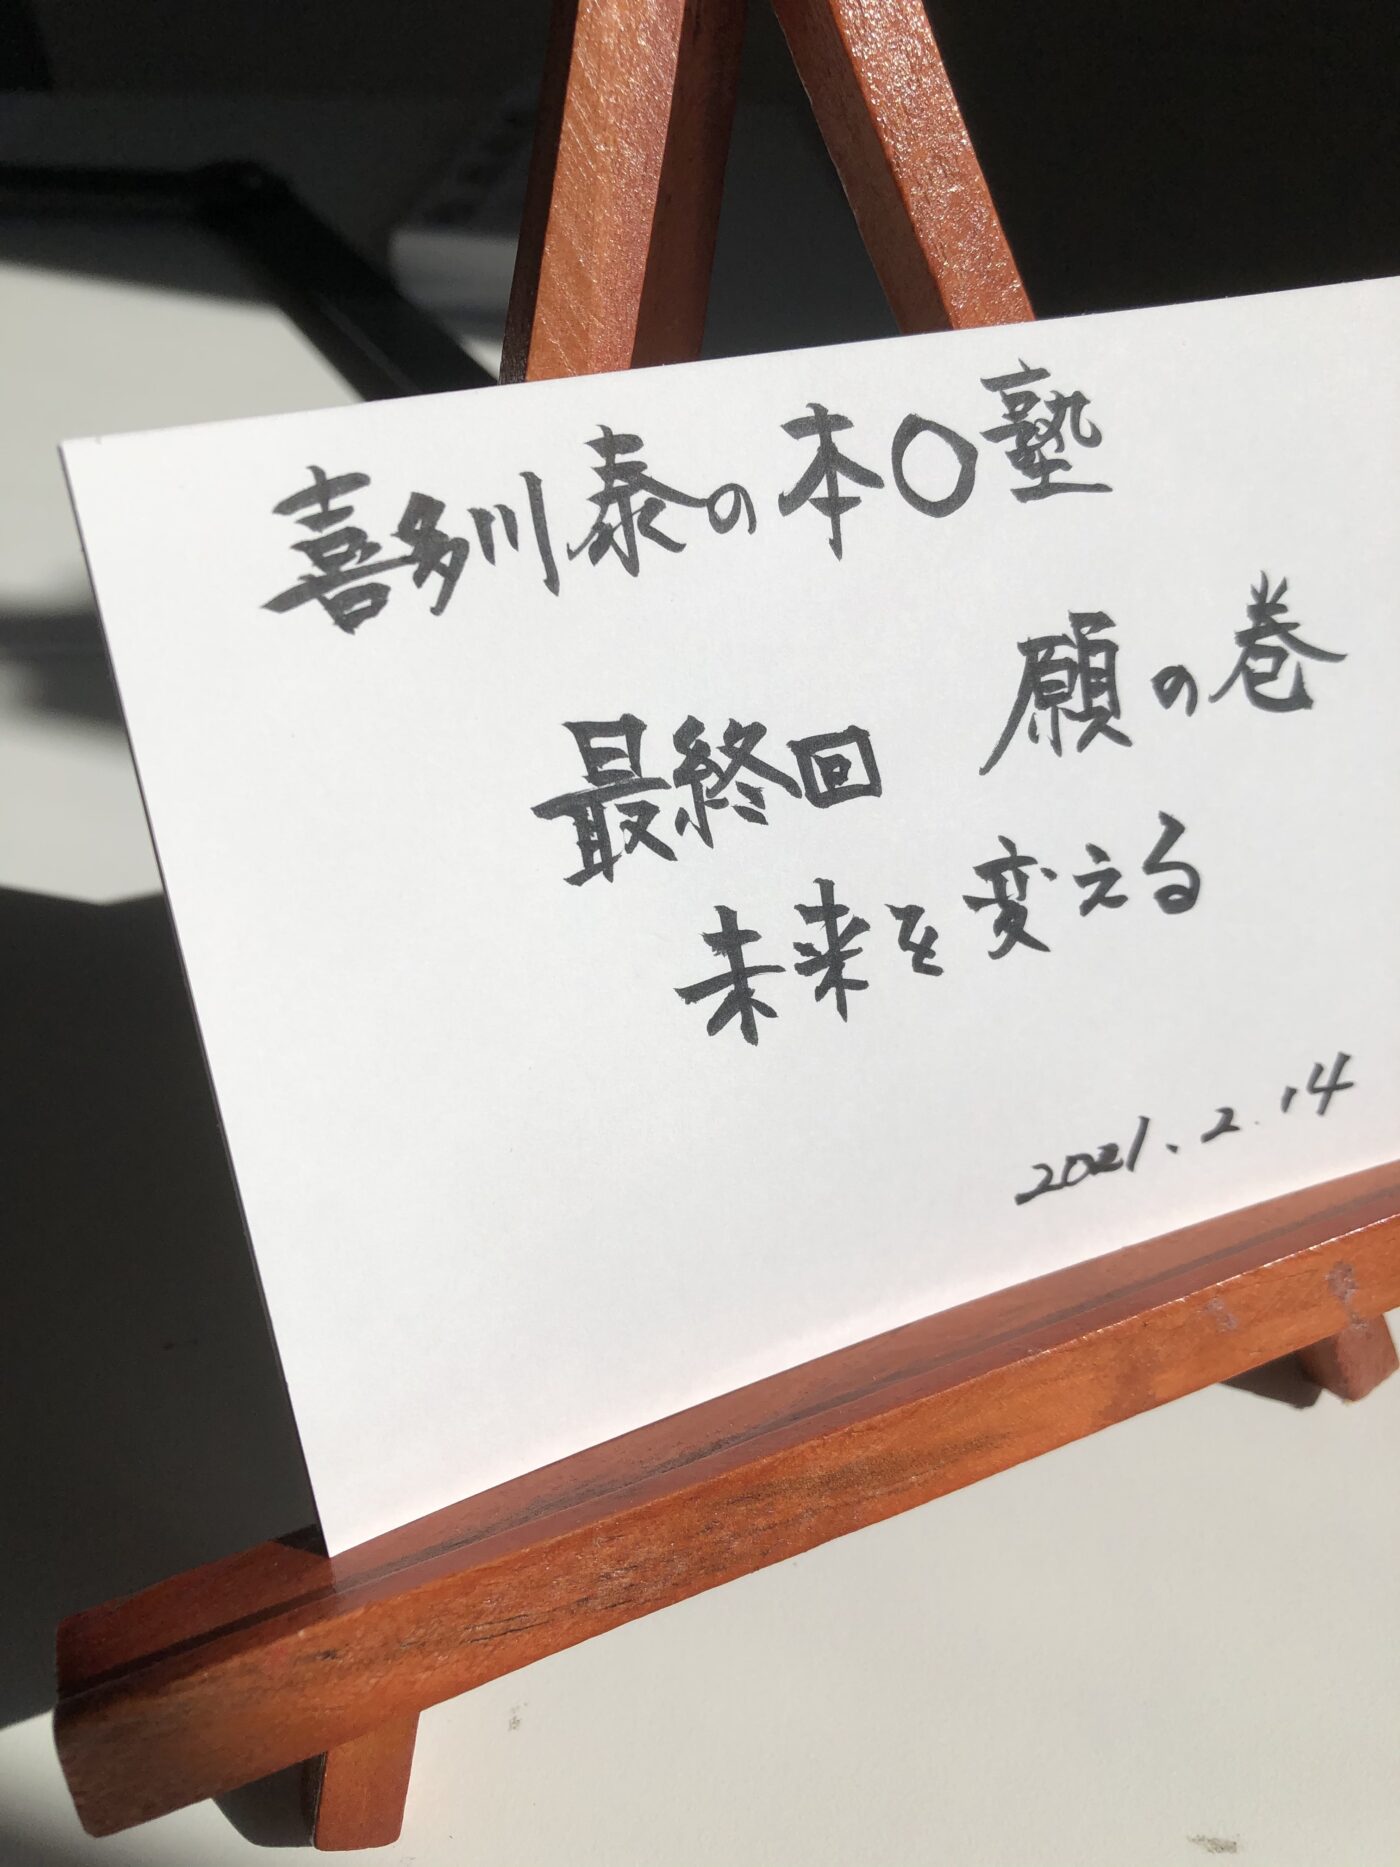 喜多川泰の本〇塾
最終回 願の巻
未来を変える
2021.2.14